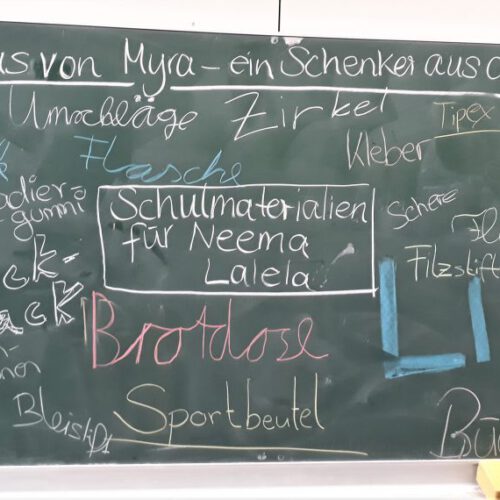 us von Myra – ein Schenker aus
Umschläge Zirkel Tipex
Kleber
Flasche
adier-
gummi
Schulmaterialien
für Neema
Lalela
Schere
Filzstift
ck-
ack
Brotdose
Li
Sportbeutel
Bleistift